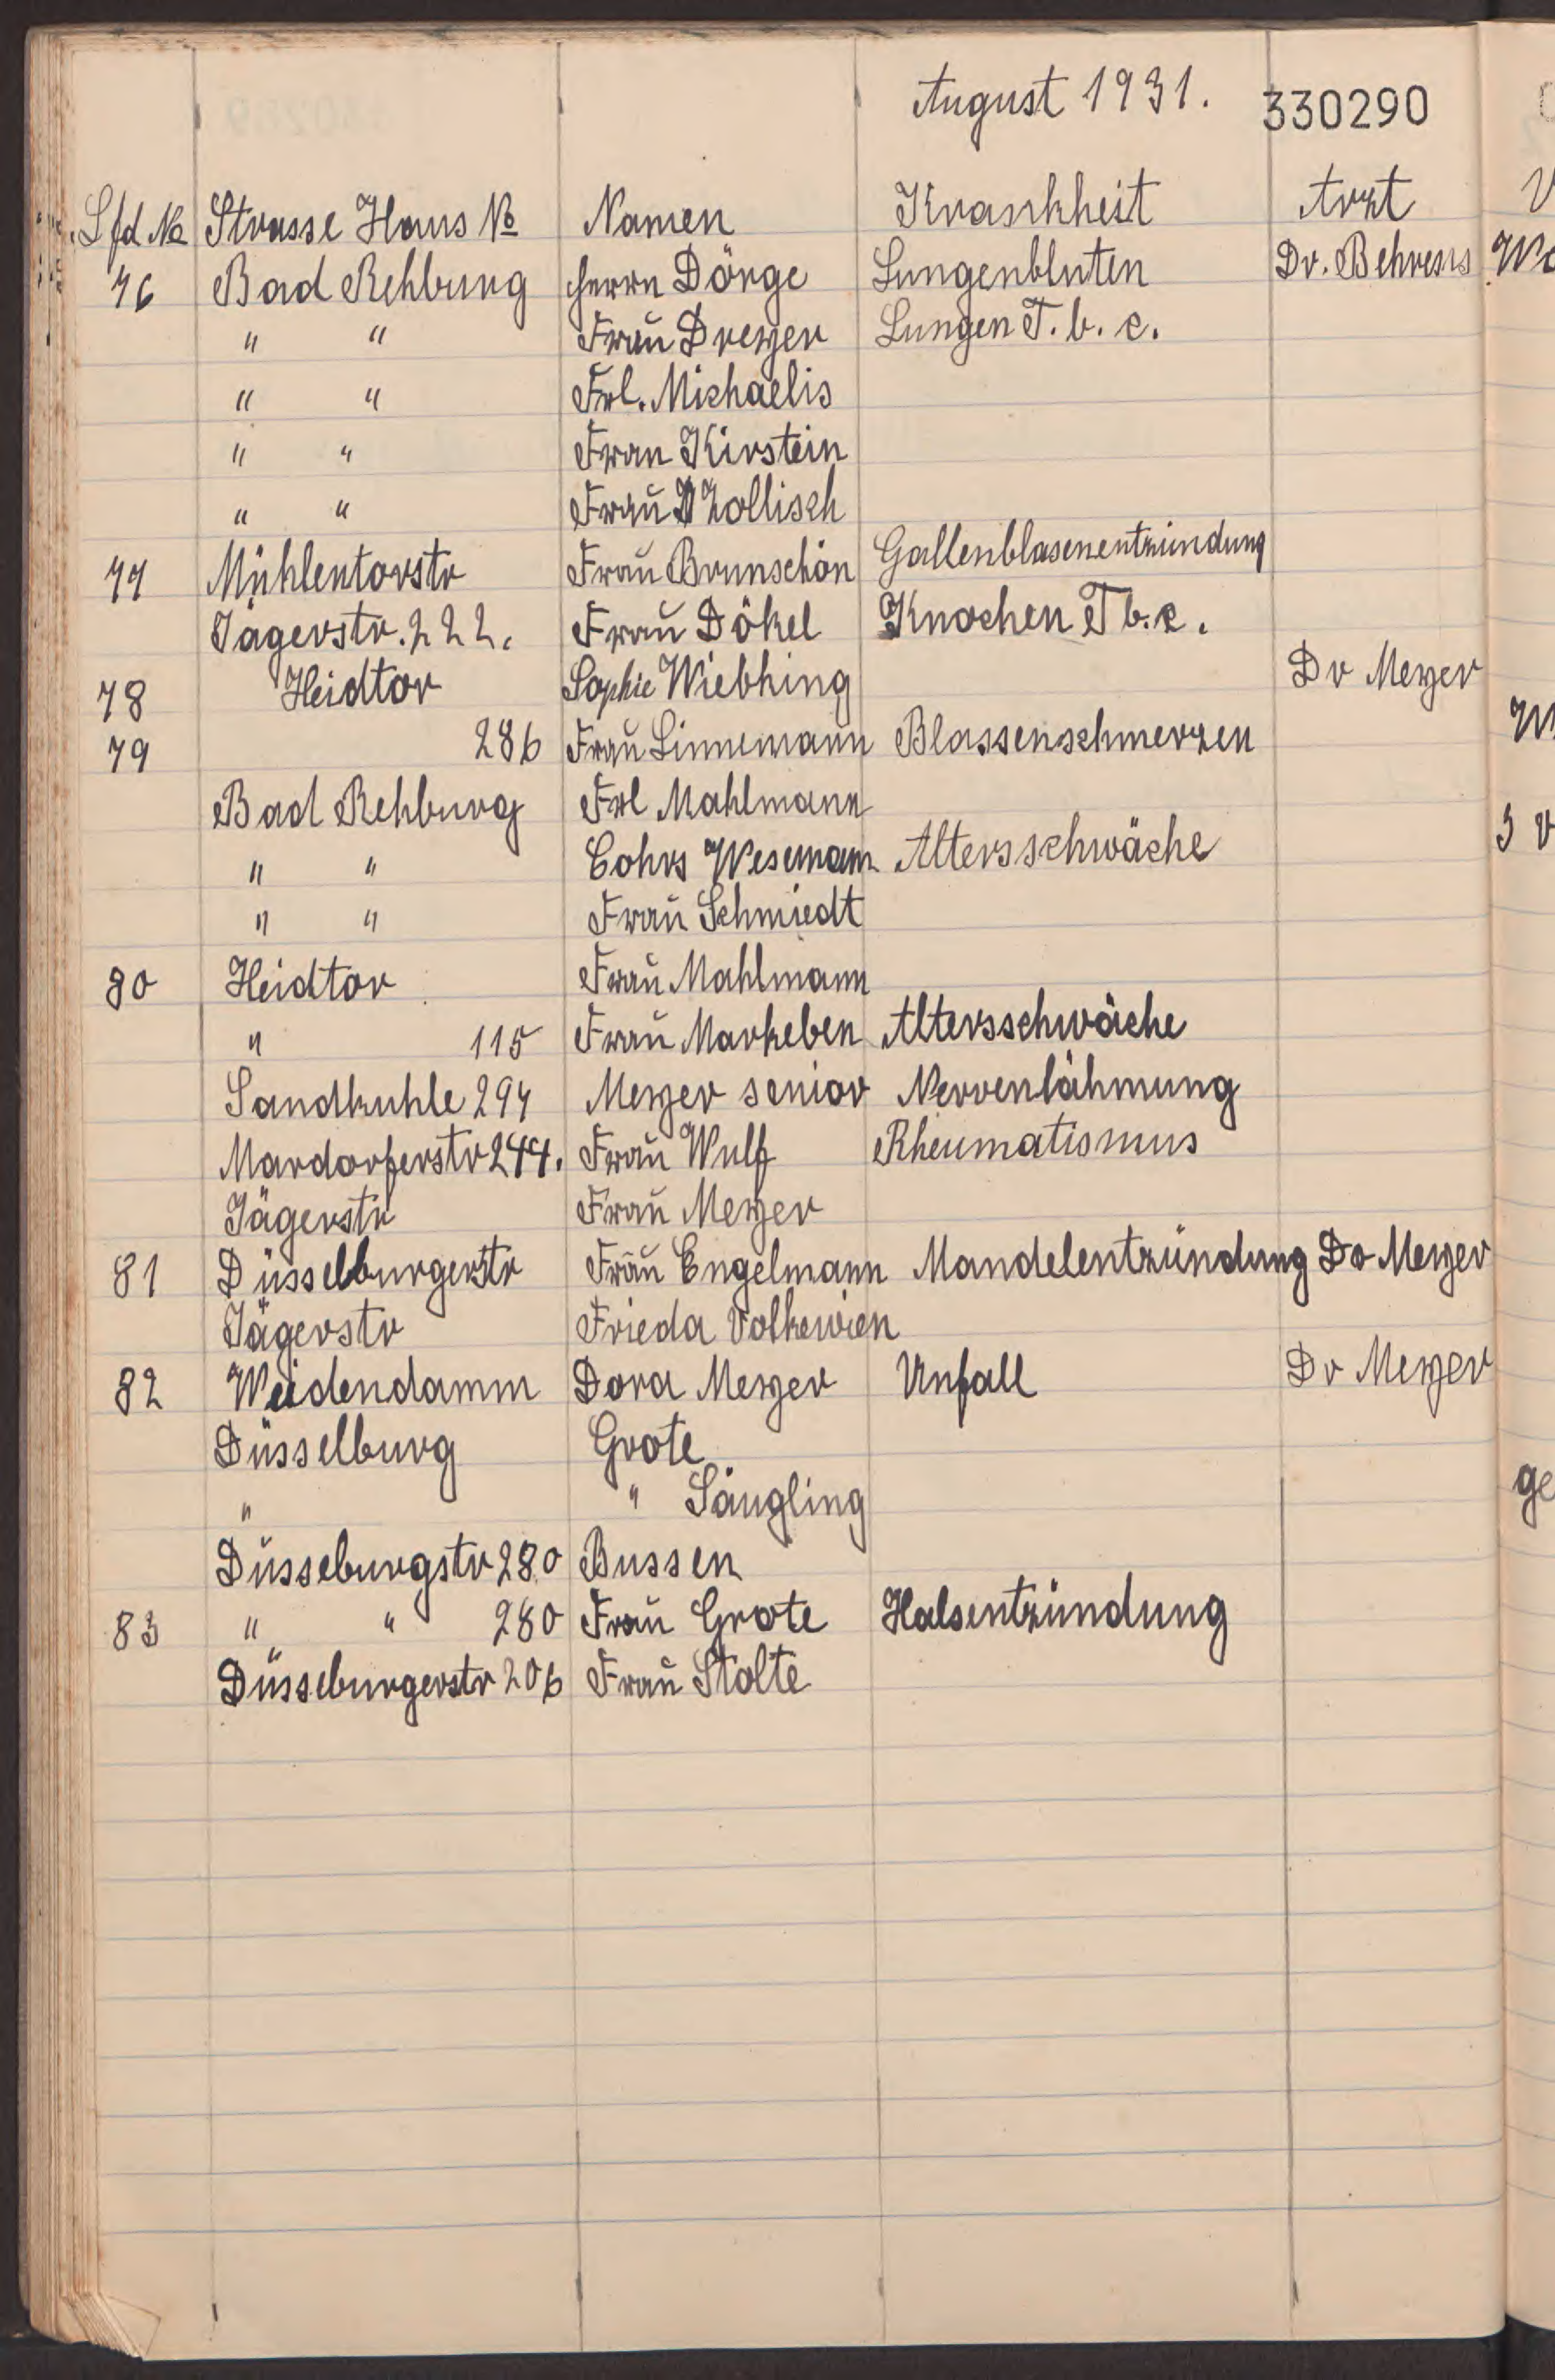 August 1931. 330290
Lfd No Strasse Haus No Namen Krankheit Arzt
76 Bad Rehburg Herrn Dörge Lungenbluten Dr. Behrens
" " Frau Dreyer Lungen T. b. c.
" " Frl. Michaelis
" " Frau Kirstein
" " Frau Zollisch
77 Mühlentorstr Frau Brunschön Gallenblasenentzündung
Jägerstr. 222. Frau Dökel Knochen T b. c.
78 Heidtor Sophie Wiebking Dr Meyer
79 286 Frau Linnemann Blassenschmerzen
Bad Rehburg Frl Mahlmann
" " Cohrs Wesemann Altersschwäche
" " Frau Schmiedt
80 Heidtor Frau Mahlmann
" 115 Frau Markeben Altersschwäche
Sandkuhle 294 Meyer senior Nervenlähmung
Mardorferstr 244. Frau Wulf Rheumatismus
Jägerstr Frau Meyer
81 Düsselburgerstr Frau Engelmann Mandelentzündung Dr Meyer
Jägerstr Frieda Volkewien
82 Weidendamm Dora Meyer Unfall Dr Meyer
Düsselburg Grote
" " Säugling
Düsseburgstr 280 Bussen
83 " " 280 Frau Grote Halsentzündung
Düsseburgerstr 206 Frau Stolte